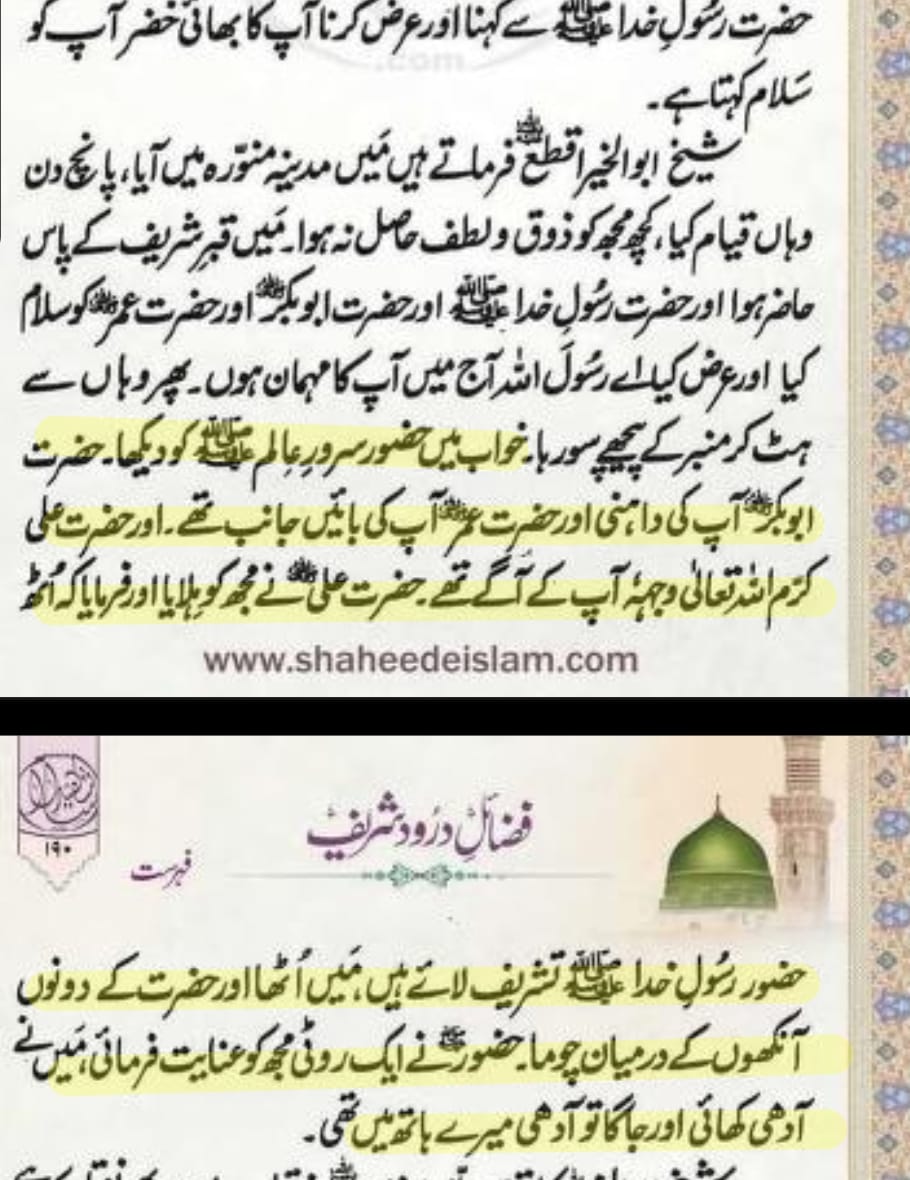 حضرت رسُولِ خدا ﷺ سے کہنا اور عرض کرنا آپ کا بھائی خضر آپ کو
.com
سَلام کہتا ہے۔
شیخ ابوالخیر اقطع رحمہ اللہ فرماتے ہیں مَیں مدینہ منوّرہ میں آیا، پانچ دن
وہاں قیام کیا، کچھ مجھ کو ذوق و لطف حاصل نہ ہوا۔ مَیں قبرِ شریف کے پاس
حاضر ہوا اور حضرت رسُولِ خدا ﷺ اور حضرت ابوبکرؓ اور حضرت عمرؓ کو سلام
کیا اور عرض کیا اے رسُولَ اللہ آج میں آپ کا مہمان ہوں۔ پھر وہاں سے
ہٹ کر منبر کے پیچھے سو رہا۔ خواب میں حضور سرورِ عالم ﷺ کو دیکھا۔ حضرت
ابوبکرؓ آپ کی داہنی اور حضرت عمرؓ آپ کی بائیں جانب تھے۔ اور حضرت علی
کرّم اللہ تعالٰی وجہہٗ آپ کے آگے تھے۔ حضرت علیؓ نے مجھ کو ہلایا اور فرمایا کہ اُٹھ
www.shaheedeislam.com
۱۹۰
فضائلِ درُود شریف
فہرست
حضور رسُولِ خدا ﷺ تشریف لائے ہیں، مَیں اُٹھا اور حضرت کے دونوں
آنکھوں کے درمیان چوما۔ حضورؐ نے ایک روٹی مجھ کو عنایت فرمائی، مَیں نے
آدھی کھائی اور جاگا تو آدھی میرے ہاتھ میں تھی۔